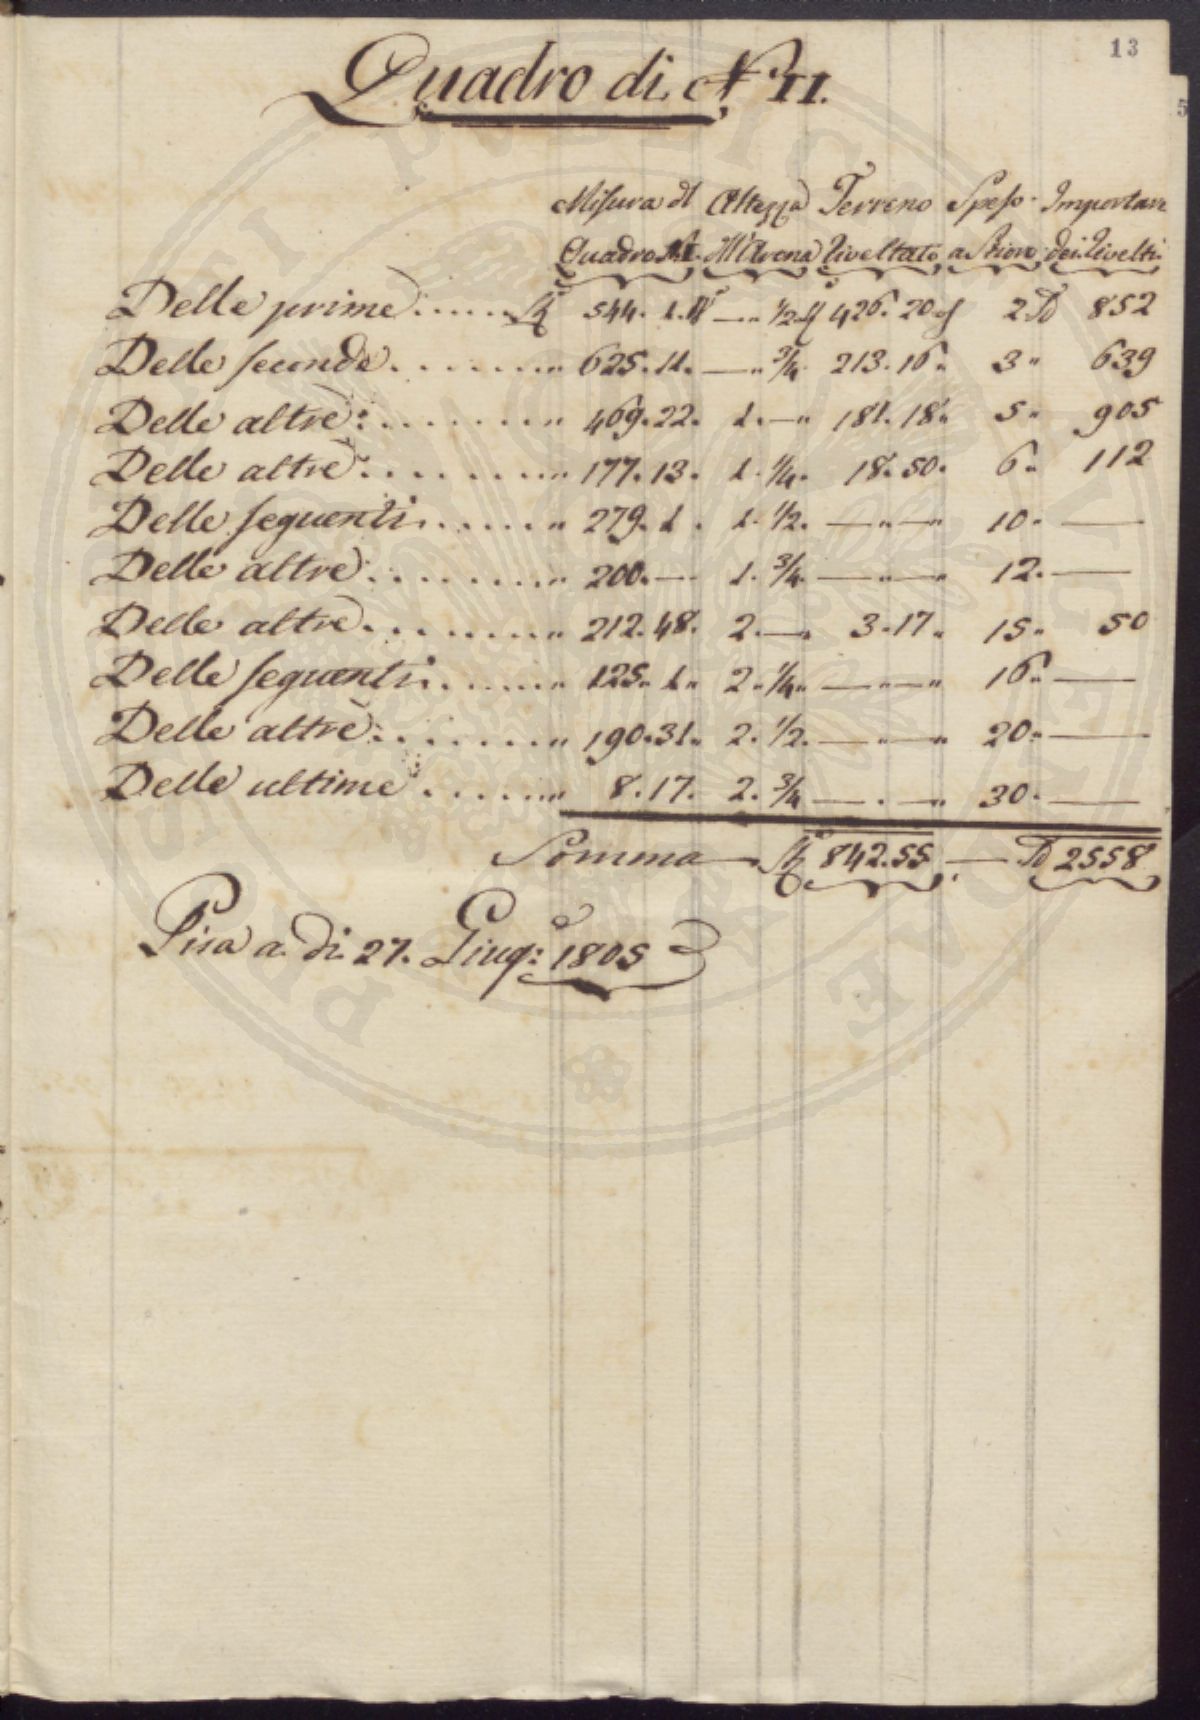 13
5
Quadro di N.º II.
Misura del Altezza Terreno Spesa Importare
Quadro N.II. Arena Riveltato a Stioro dei Rivelti
Delle prime 544. 1. — 1/2 426. 20 2 852
Delle seconde 625. 11. — 3/4 213. 16 3 639
Delle altre 469. 22. 1. — 181. 18 5 905
Delle altre 177. 13. 1. 1/4 18. 50 6 112
Delle seguenti 279. 1. 1. 1/2 — — 10 —
Delle altre 200. — 1. 3/4 — — 12 —
Delle altre 212. 48. 2. — 3. 17 15 50
Delle seguenti 125. 1. 2. 1/4 — — 16 —
Delle altre 190. 31. 2. 1/2 — — 20 —
Delle ultime 8. 17. 2. 3/4 — — 30 —
Somma 842. 55 — 2558
Pisa a. di 27. Giug:º 1805